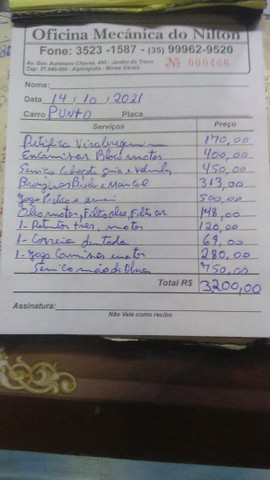 Oficina Mecânica do Nilton
Fone: 3523 -1587 - (35) 99962-9520
Av. Gov. Aureliano Chaves, 493 - Jardim do Trevo
Cep: 37.940-000 - Alpinópolis - Minas Gerais
Nº 000406
Nome:
Data 14/10/2021
Carro PUNTO Placa
Serviços Preço
Retifica Virabrequim 170,00
Encamisar Bloco motor 400,00
Serviço Cabeçote guia e Valvulas 450,00
Bronzinas Biela e Mancal 313,00
Jogo 500,00
Oleo motor, Filto oleo, Filto ar 148,00
1- Retentor tras. motor 120,00
1- Correia dentada 69,00
1- Jogo Camisas motor 280,00
Serviço mão de Obra 750,00
Total R$ 3,200,00
Assinatura:
Não Vale como recibo